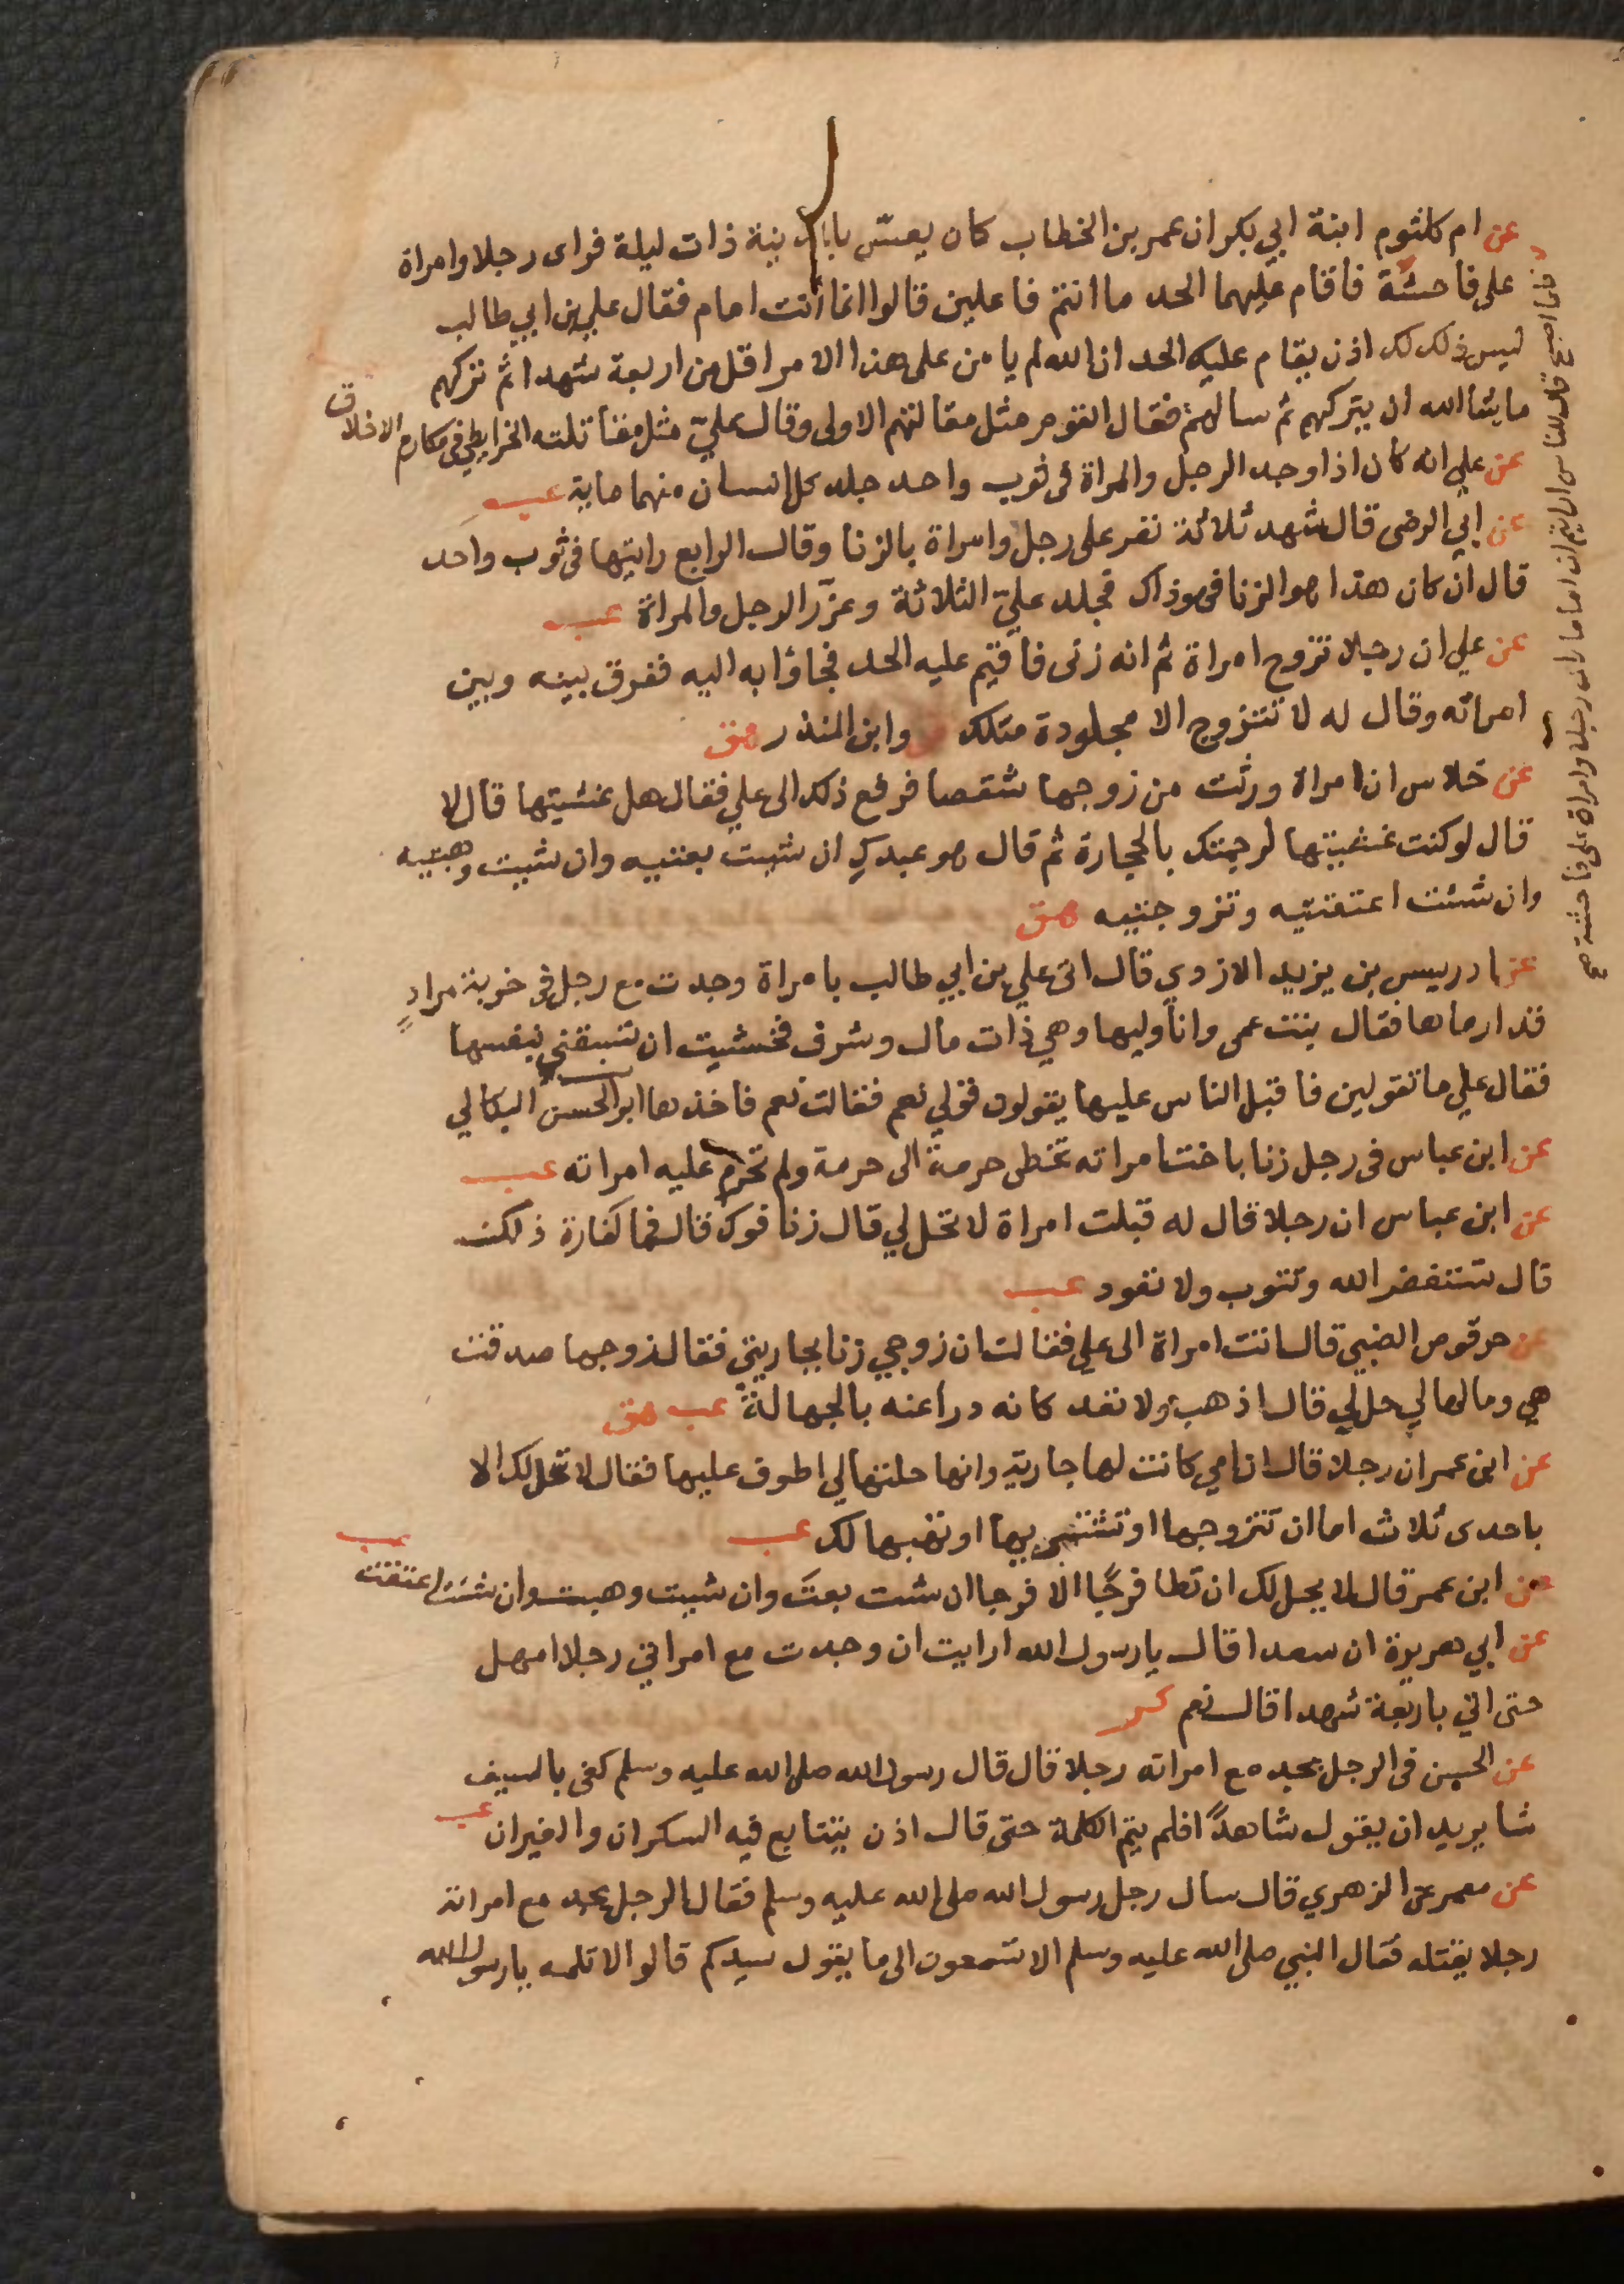 عن ام كلثوم ابنة ابي بكر ان عمر بن الخطاب كان يعسّ بالمدينة ذات ليلة فراى رجلا وامراة
على فاحشة فاقام عليهما الحد ما انتم فاعلين قالوا انما انت امام فقال علي بن ابي طالب
ليس ذلك لك اذن يقام عليك الحد ان الله لم يامن على هذا الامر اقل من اربعة شهدا ثم تركهم
ماشا الله ان يتركهم ثم سالهم فقال القوم مثل مقالتهم الاولى وقال عليّ مثل مقالته الخرايطي في مكارم الاخلاق
عن علي انه كان اذا وجد الرجل والمراة في ثوب واحد جلد كل انسان منهما ماية عب
عن ابي الوضى قال شهد ثلاثة نفر على رجل وامراة بالزنا وقال الرابع رايتها في ثوب واحد
قال ان كان هذا هو الزنا فهو ذاك فجلد عليّ الثلاثة وعزّر الرجل والمراة عب
عن علي ان رجلا تزوج امراة ثم انه زنى فاقيم عليه الحد فجاؤا به اليه ففرق بينه وبين
امراته وقال له لا تتزوج الا مجلودة مثلك وابن المنذر هق
عن خلاس ان امراة ورثت من زوجها شقصا فرفع ذلك الى علي فقال هل غشيتها قال لا
قال لو كنت غشيتها لرجمتك بالحجارة ثم قال هو عبدكِ ان شيت بعتيه وان شيت وهبتيه
وان شئت اعتقتيه وتزوجتيه هق
عن ادريس بن يزيد الازدي قال اتى علي بن ابي طالب بامراة وجدت مع رجل في خربة مرادٍ
قد ارماها فقال بنت عمى وانا وليها وهي ذات مال وشرف فخشيت ان تسبقني بنفسها
فقال علي ما تقولين فاقبل الناس عليها يقولون قولي نعم فقالت نعم فاخذها ابو الحسن البكالي
عن ابن عباس في رجل زنا باخت امراته تخطى حرمة الى حرمة ولم تحرم عليه امراته عب
عن ابن عباس ان رجلا قال له قبلت امراة لا تحل لي قال زنا فوك قال فما كفارة ذلك
قال تستغفر الله وتتوب ولا تعود عب
عن حرقوص الضبي قال اتت امراة الى علي فقالت ان زوجي زنا بجاريتي فقال زوجها صدقت
هي ومالها لي حل لي قال اذهب ولا تعد كانه درا عنه بالجهالة عب هق
عن ابن عمر ان رجلا قال ان امي كانت لها جارية وانها حلتها لي اطوف عليها فقال لا تحل لك الا
باحدى ثلاث اما ان تتزوجها او تشتريها او تهبها لك عب
عن ابن عمر قال لا يحل لك ان تطا فرجًا الا فرجا ان شت بعتَ وان شيت وهبت وان شئت اعتقت عب
عن ابي هريرة ان سعدا قال يا رسول الله ارايت ان وجدت مع امراتي رجلا امهل
حتى اتي باربعة شهدا قال نعم كر
عن الحسن في الرجل يجد مع امراته رجلا قال قال رسول الله صلى الله عليه وسلم كفى بالسيف
شا يريد ان يقول شاهدًا فلم يتم الكلمة حتى قال اذن يتتابع فيه السكران والغيران عب
عن معمر عن الزهري قال سال رجل رسول الله صلى الله عليه وسلم فقال الرجل يجد مع امراته
رجلا يقتله فقال النبي صلى الله عليه وسلم الا تسمعون الى ما يقول سيدكم قالوا لا تلمه يا رسول الله
فلما اصبح قال للناس ارايتم ان اماما راى رجلا وامراة على فاحشة صح